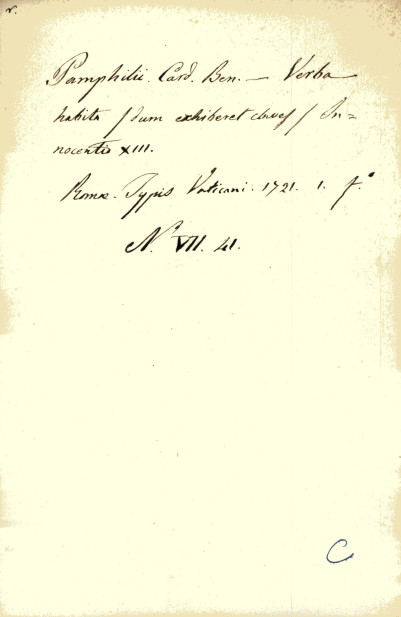 r.
Pamphilii. Card. Ben. — Verba
habita / dum exhiberet claves / In=
nocentio XIII.
Romæ. Typis Vaticani. 1721. 1. f.º
N.º VII. 41.
C